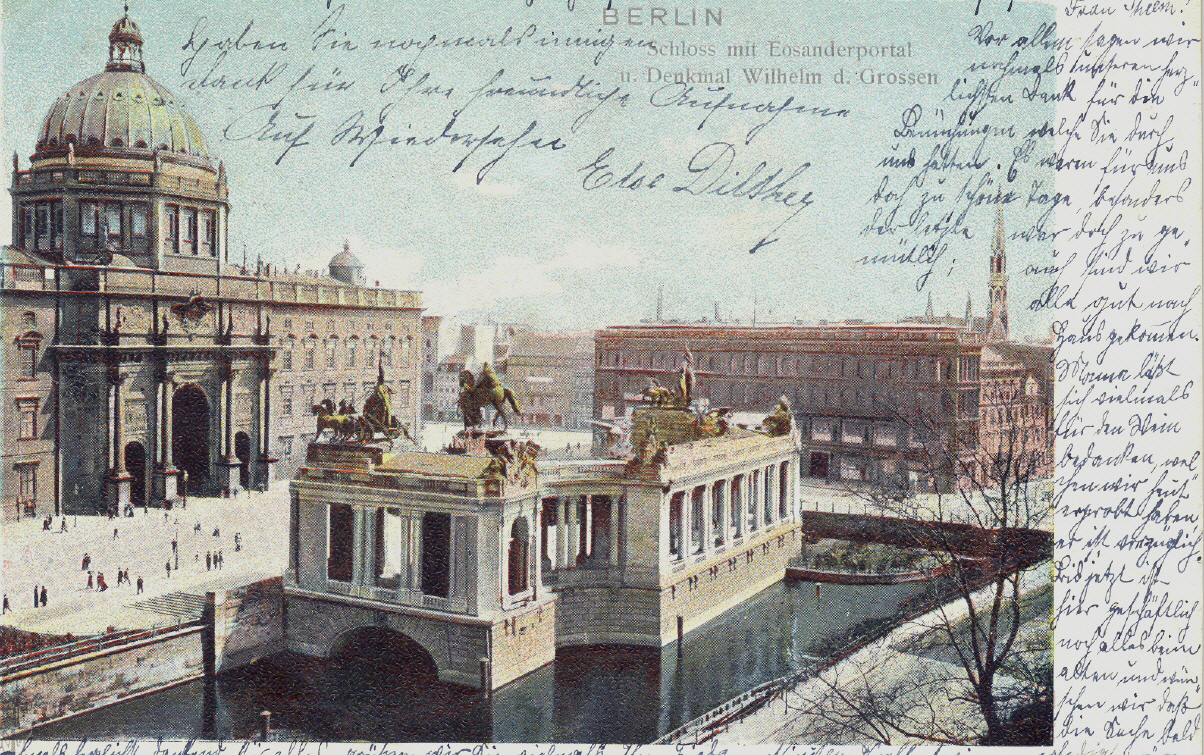 BERLIN
Schloss mit Eosanderportal
u. Denkmal Wilhelm d. Grossen
Haben Sie nochmals innigen
dank für Ihre freundliche Aufnahme
Auf Wiedersehn
Dilthey
Frau
Vor allem sagen wir
nochmals unseren herz-
lichsten Dank für die
Bemühungen welche Sie durch
uns hatten. Es waren für uns
doch zu schöne Tage, besonders
der letzte war doch zu ge-
mütlich; auch sind wir
alle gut nach
Haus gekommen.
Mama läßt
sich vielmals
für den Wein
bedanken, wel-
chen wir heut
erprobt haben
er ist vorzüglich.
Bis jetzt ist
hier geschäftlich
noch alles beim
alten und wün-
schen wir daß
die Sache bald